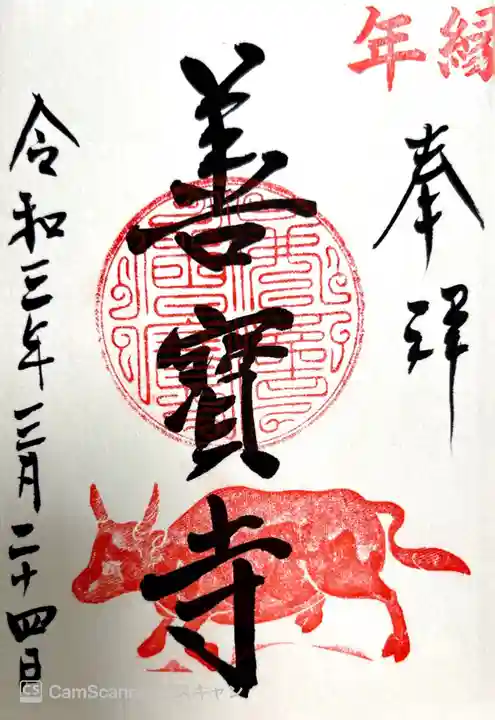 縁年
奉拝
善寳寺
令和三年三月二十四日
CS CamScann スキャン